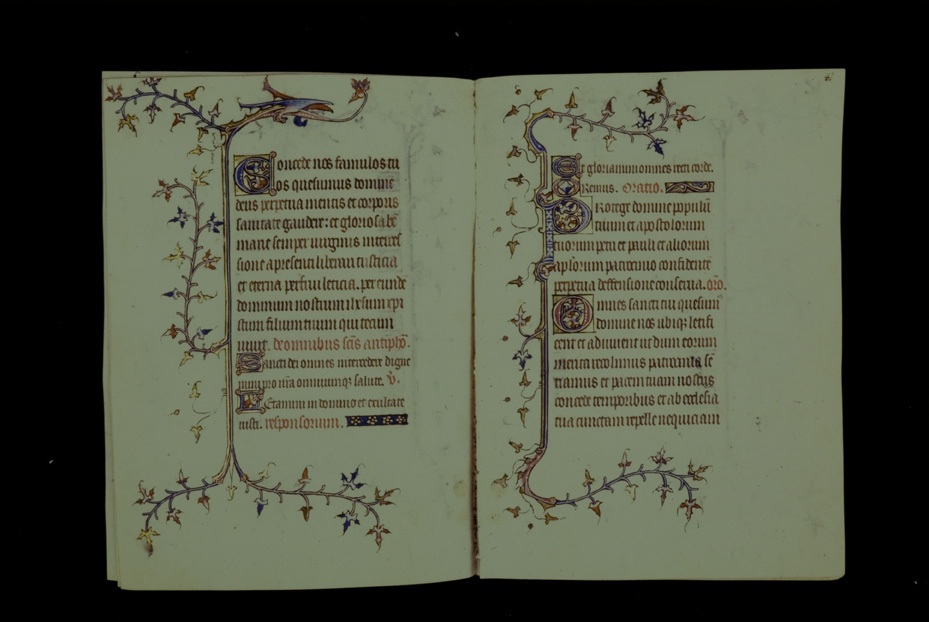 Concede nos famulos tu
os quesumus domine
deus perpetua mentis et corporis
sanitate gaudere: et gloriosa be
marie semper uirginis interces
sione a presenti liberari tristicia
et eterna perfrui leticia. per eunde
dominum nostrum ihesum xpi
stum filium tuum qui tecum
uiuit. de omnibus scis antipho.
Sancti dei omnes intercedere digne
mini pro nra omniumqz salute. V.
Letamini in domino et exultate
iusti. responsorium.
Et gloriamini omnes recti corde.
Oremus. Oratio.
Protege domine populu
tuum et apostolorum
tuorum petri et pauli et aliorum
aplorum patrocinio confidente
perpetua deffensione conserua. oro.
Omnes sancti tui quesum
domine nos ubiqz letifi
cent et adiuuent ut dum eorum
merita recolimus patrocinia se
ciamus et pacem tuam nostris
concede temporibus et ab ecclesia
tua cunctam repelle nequiciam